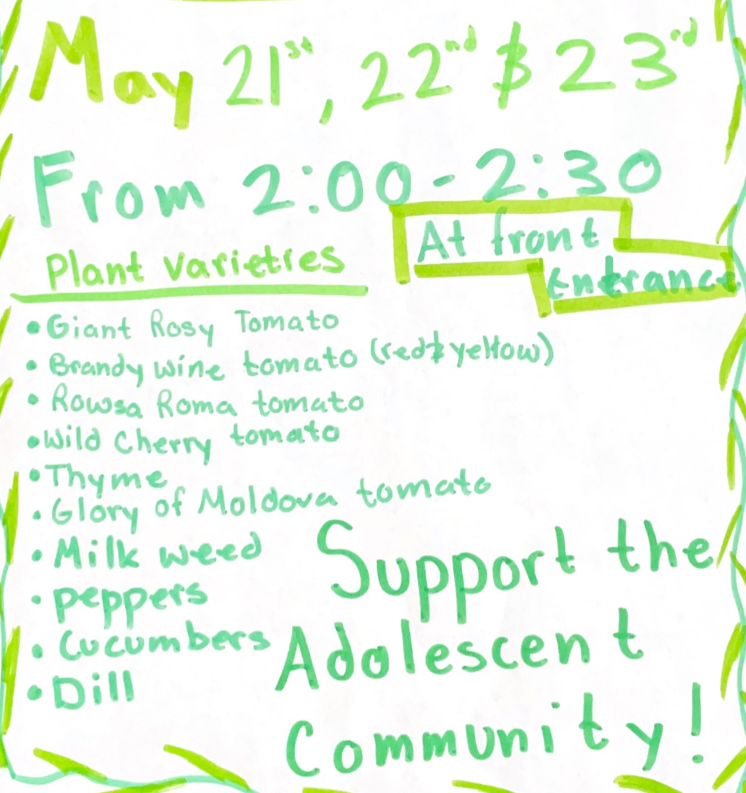 May 21st, 22nd & 23rd
From 2:00-2:30
At front
Entrance
Plant varieties
• Giant Rosy Tomato
• Brandy wine tomato (red & yellow)
• Rowsa Roma tomato
• Wild Cherry tomato
• Thyme
• Glory of Moldova tomato
• Milk weed
• peppers
• Cucumbers
• Dill
Support the
Adolescent
Community!